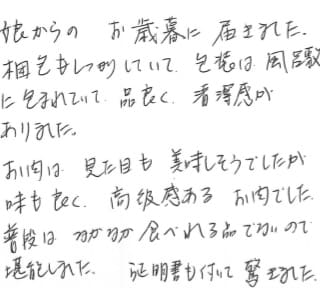 娘からの お歳暮に 届きました。
梱包もしっかりしていて、包装は、風呂敷
に包まれていて、品良く、贅沢感が
ありました。
お肉は、見た目も 美味しそうでしたが
味も良く、高級感ある お肉でした。
普段は なかなか 食べれる品でないので
堪能しました。 証明書も付いて 驚きました。